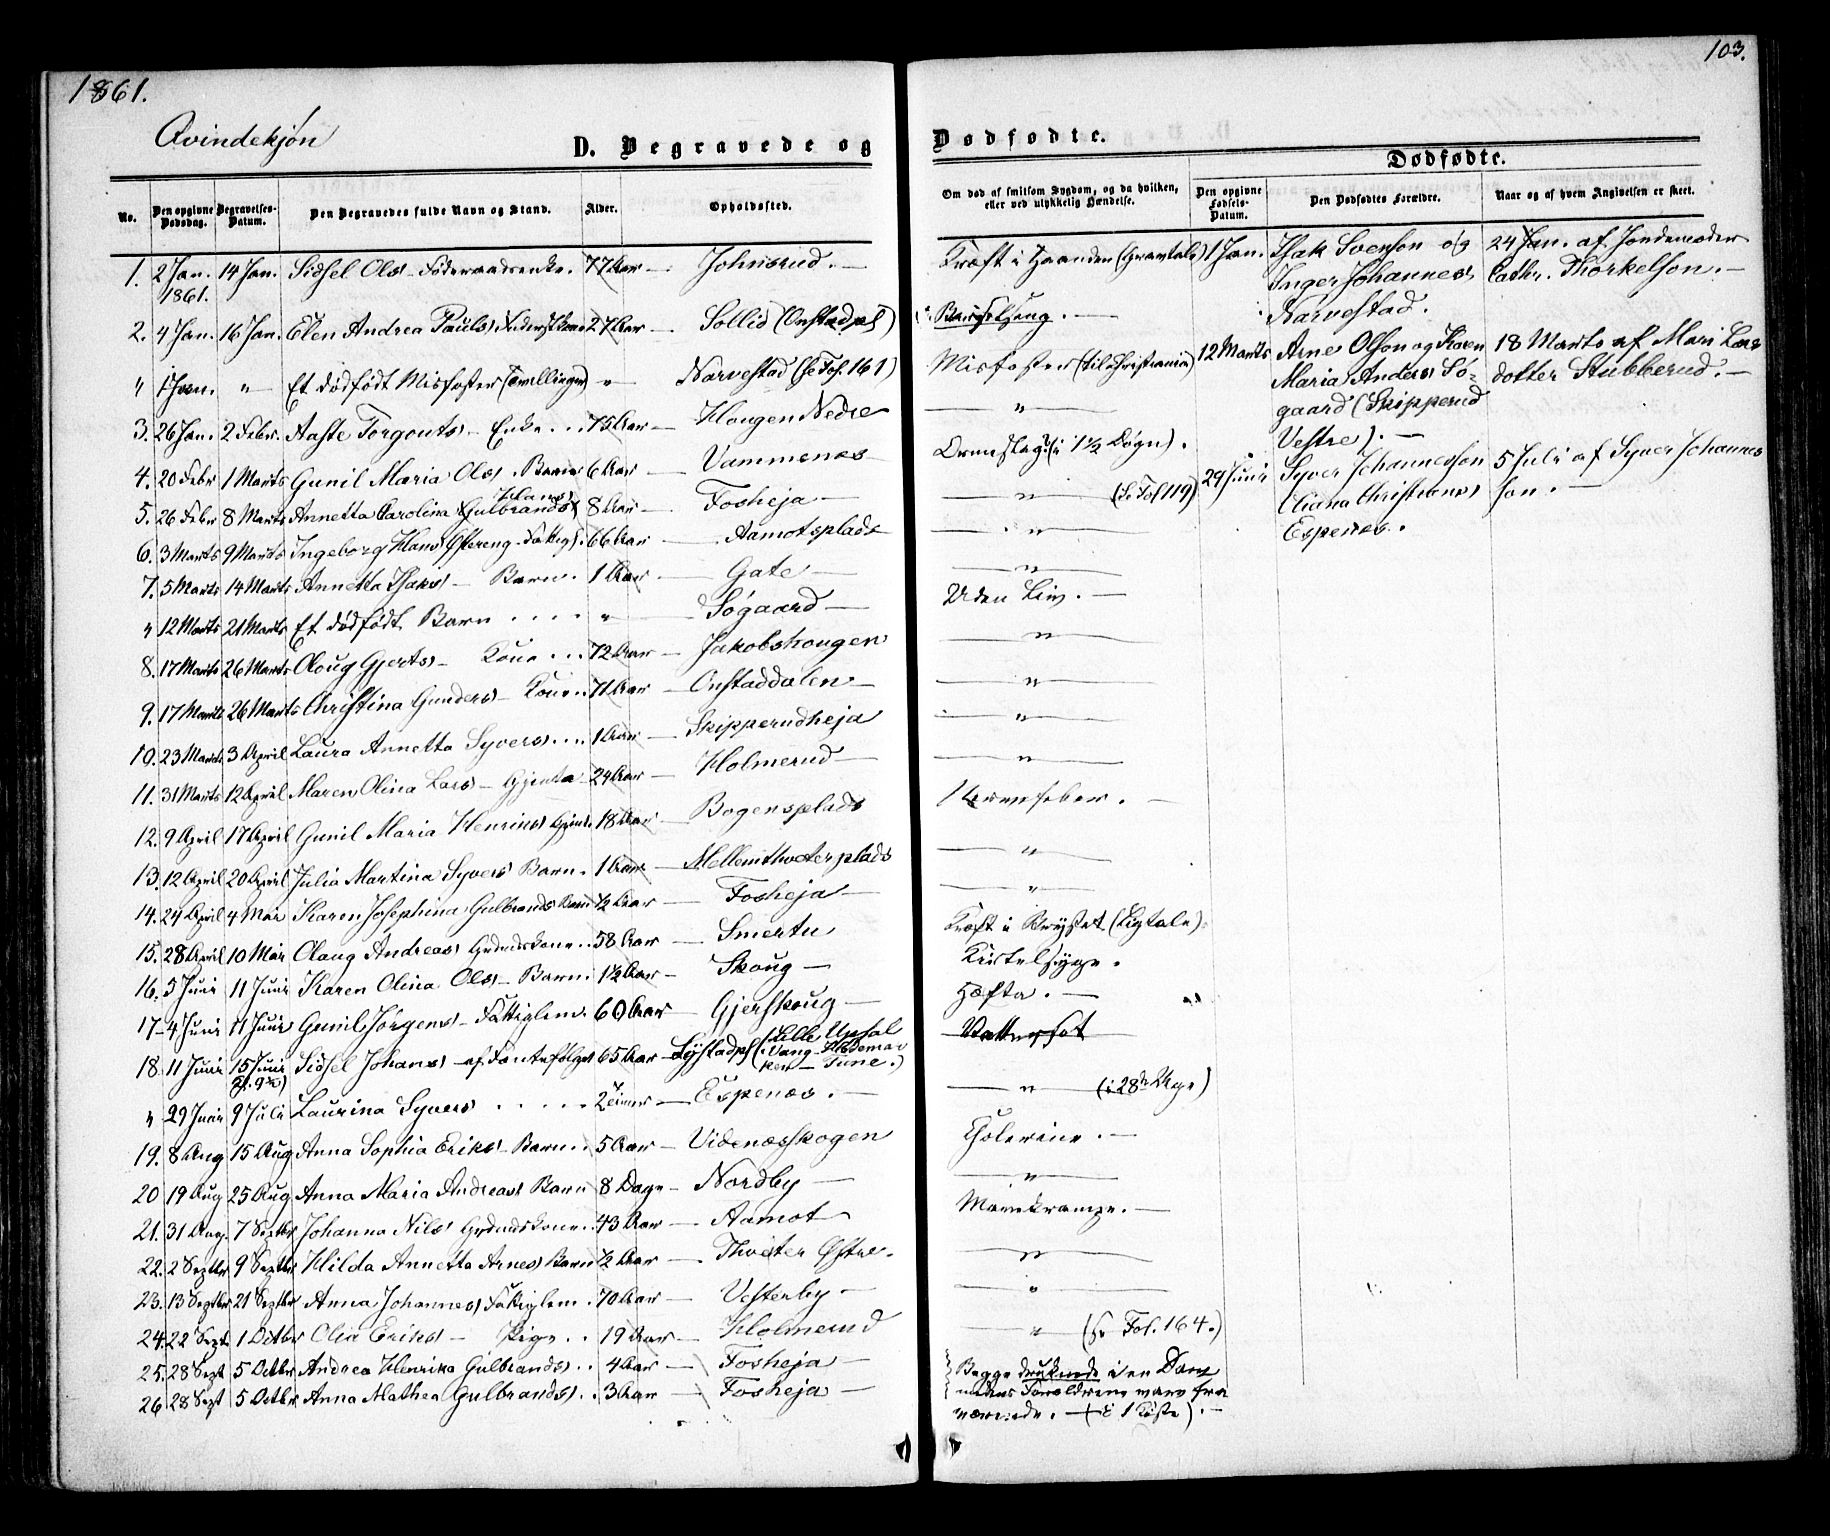 1861.
103.
Qvindekjøn
D. Begravede og Dødfødte.
Dødfødte.
No.
Den opgivne Dødsdag.
Begravelses-Datum.
Den Begravedes fulde Navn og Stand.
Alder.
Opholdssted.
Om død af smitsom Sygdom, og da hvilken, eller ved ulykkelig Hændelse.
Den opgivne Fødsels-Datum.
Den Dødfødtes Forældre.
Naar og af hvem Angivelsen er skeet.
1. 2 Jan. 1861. 14 Jan. Sidsel Ols - Føderaadsenke. 77 Aar - Johnsrud. - Kræft i Haanden
2. 4 Jan. 16 Jan. Elen Andrea Pauls 27 Aar - Sollid (Onstadpl) Barselseng. -
" 1 Jan. " Et dødfødt Misfoster (Tævllinger) " Narvestad (se Fol. 161) Misfoster (til Christiania)
3. 26 Jan. 2 Febr. Aaste Torgouts - Enke ... 75 Aar - Hougen Nedre - " -
4. 20 Febr 1 Marts Gunil Maria Ols. Barn 6 Aar - Vammenæs (i 1½ Døgn).
5. 26 Febr 8 Marts Annetta Carolina Gulbrands Hans 8 Aar - Fosheja - " - (se Fol 119)
6. 3 Marts 9 Marts Ingeborg Hans Østereng - Fattigl. 66 Aar - Aamotsplads - " -
7. 5 Marts 14 Marts Annetta Isaks - Barn. 1 Aar - Gate - " -
" 12 Marts 21 Marts Et dødfødt Barn .... " Søgaard - Uden Liv. -
8. 17 Marts 26 Marts Oloug Gjerts - Kone ... 72 Aar - Jakobshougen - " -
9. 17 Marts 26 Marts Christina Gunders - Kone .. 71 Aar - Onstaddalen - " -
10. 23 Marts 3 April Laura Annetta Syvers ... 1 Aar - Skipperudheja - " -
11. 31 Marts 12 April Maren Olina Lars - Gjenta - 24 Aar - Holmerud - " -
12. 9 April 17 April Gunil Maria Henriks Gjenta 18 Aar - Bogensplads - Nervefeber. -
13. 12 April 20 April Julia Martina Syvers Barn. 1 Aar - Mellemthveterplads - " -
14. 24 April 4 Mai Karen Josephina Gulbrands Barn ½ Aar - Fosheja - " -
15. 28 April 10 Mai Oloug Andreas Grdmdskone .. 58 Aar - Smertu Kræft i Brystet (Ligtale).
16. 5 Juni 11 Juni Karen Olina Ols - Barn. 1½ Aar - Skoug - Kirtelsyge.
17 - 4 Juni 11 Juni Gunil Jørgens - Fattiglem. 60 Aar - Gjerskoug - Hæfta. -
18. 11 Juni 15 Juni Sidsel Johans - af Fantefølget 65 Aar - Lystadpl (Lille Upsal Vang - Hedemarken - Tune.) Vattersot
" 29 Juni 9 Juli Laurina Syvers ..... 2 Timer - Espenæs. - " - (i 28de Uge)
19. 8 Aug 15 Aug Anna Sophia Eriks - Barn .. 5 Aar - Videnæsskogen Kolerine. -
20 19 Aug 25 Aug Anna Maria Andreas Barn 8 Dage - Nordby - " -
21. 31 Aug. 7 Septbr Johanna Nils Grdmdskone .. 43 Aar - Aamot - Mavekrampe. -
22. 2 Septbr 9 Septbr Hilda Annetta Arnes Barn ½ Aar - Thveter Østre. - " -
23. 13 Septbr 21 Septbr Anna Johannes Fattiglem. 70 Aar - Vesterby - " -
24. 22 Sept 1 Octbr Olia Eriks - Pige .. 19 Aar - Holmerud - " - (se Fol. 164.)
25. 28 Sept 5 Octbr Andrea Henrika Gulbrands .. 4 Aar - Fosheja - Begge druknede i en Dam
26 28 Sept 5 Octbr Anna Mathea Gulbrands. 3 Aar - Fosheja - medens Forældrene vare fraværende. - (i 1 Kiste). -
1 Jan. Isak Svenson og Inger Johannes Narvestad. 24 Jan. af Jordemoder Cathr. Thorkelson. -
12 Marts Arne Olson og Karen Maria Anders Søgaard (Skipperud Vestre). - 18 Marts af Mari Larsdotter Stubberud. -
29 Juni Syver Johannesson Eliana Christians Espenæs. 5 Juli af Syver Johannesson. -